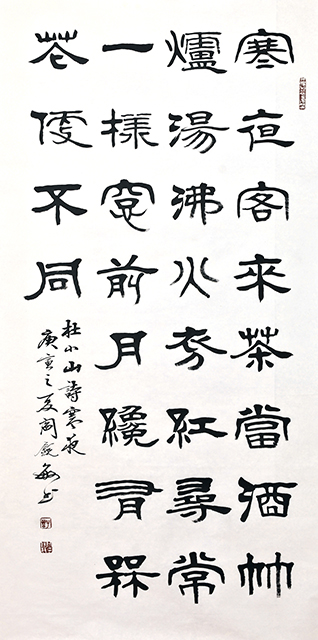 寒夜客來茶當酒竹
爐湯沸火初紅尋常
一樣窗前月纔有槑
花便不同
杜小山詩寒夜
庚寅之夏閻銳敏书